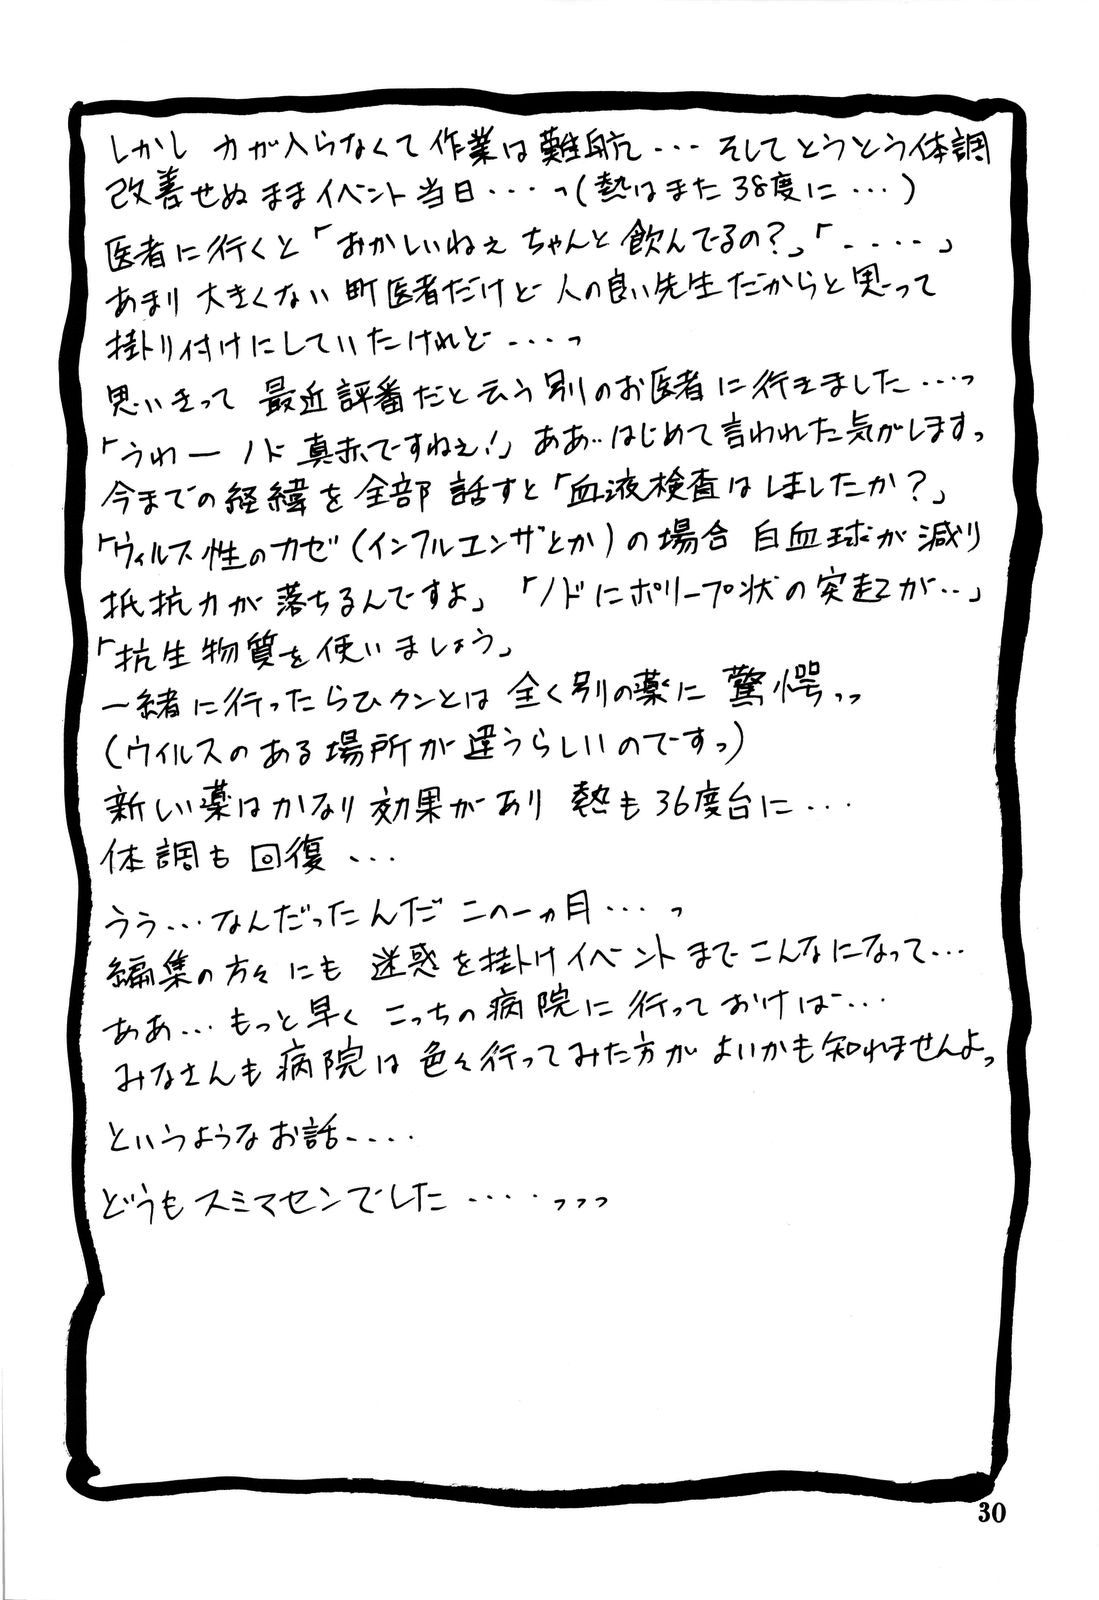 しかし 力が入らなくて作業は難航・・・ そしてとうとう体調
改善せぬままイベント当日・・・っ(熱はまた38度に・・・)
医者に行くと「おかしいねぇ ちゃんと飲んでるの?」「・・・・」
あまり大きくない町医者だけど 人の良い先生だからと思って
掛かり付けにしていたけれど・・・っ
思いきって 最近評番だと云う別のお医者に行きました・・・っ
「うわー ノド真赤ですねぇ!」ああ‥はじめて言われた気がしますっ
今までの経緯を全部話すと「血液検査はしましたか?」
「ウィルス性のカゼ(インフルエンザとか)の場合 白血球が減り
抵抗力が落ちるんですよ」「ノドにポリープ状の突起が‥」
「抗生物質を使いましょう」
一緒に行ったらひクンとは全く別の薬に驚愕っっ
(ウイルスのある場所が違うらしいのですっ)
新しい薬はかなり効果があり 熱も36度台に・・・
体調も回復・・・
うう・・・なんだったんだ この一ヵ月・・・っ
編集の方々にも 迷惑を掛けイベントまでこんなになって・・・
ああ・・・もっと早く こっちの病院に行っておけば・・・
みなさんも病院は色々行ってみた方がよいかも知れませんよっ
というようなお話・・・・
どうもスミマセンでした・・・・っっっ
30